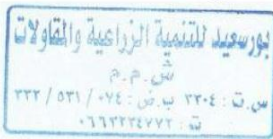 بورسعيد للتنمية الزراعية والمقاولات
ش.م.م
س.ت: ٢٣٠٤ ب.ض: ٠٧٤ / ٥٣١ / ٢٢٢
ت: ٠٦٦٣٢٣٤٧٧٢